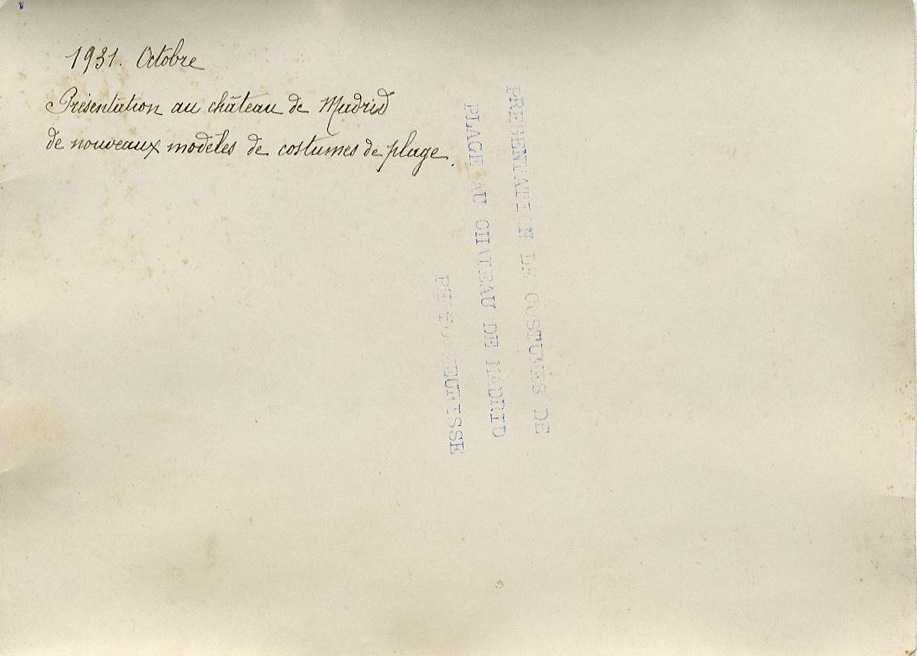 1931. Octobre
Présentation au château de Madrid
de nouveaux modèles de costumes de plage.
PRESENTATI N DE COSTUMES DE
PLAGE AU CHATEAU DE MADRID